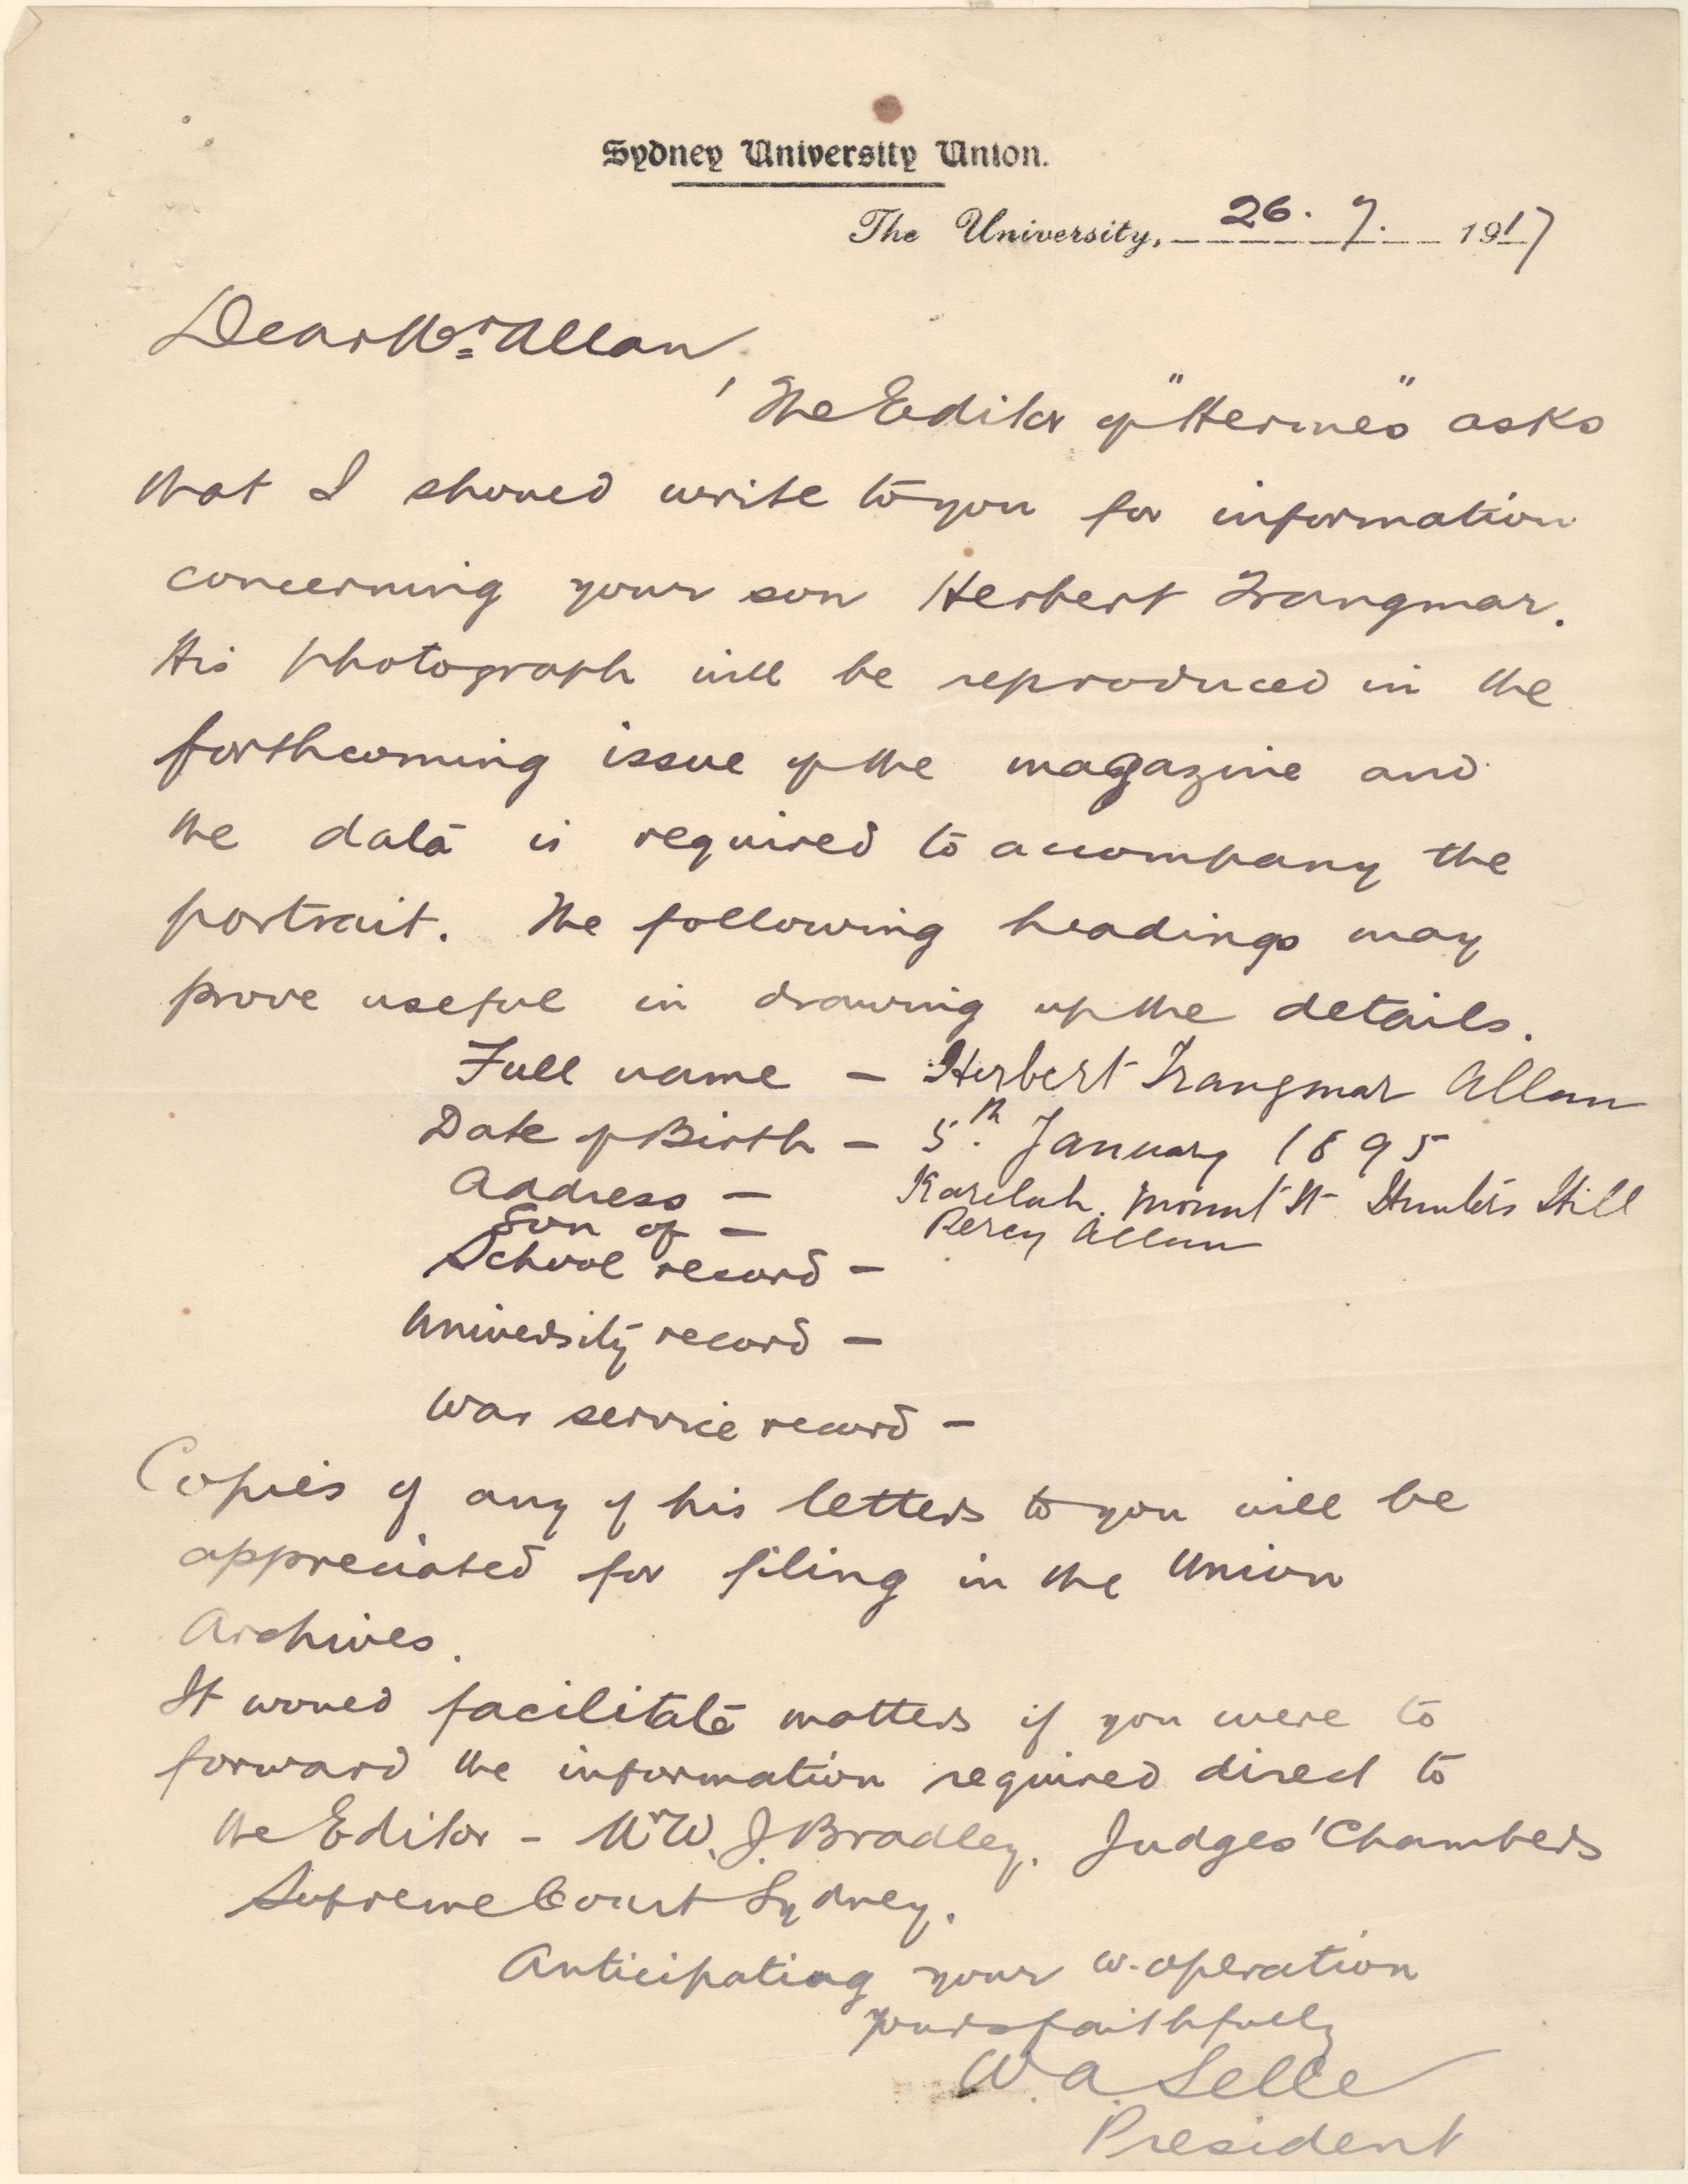 Sydney University Union.
The University, 26. 7. 1917
Dear Mr. Allan,
The Editor of "Hermes" asks
that I should write to you for information
concerning your son Herbert Trangmar.
His photograph will be reproduced in the
forthcoming issue of the magazine and
the data is required to accompany the
portrait. The following headings may
prove useful in drawing up the details.
Full name – Herbert Trangmar Allan
Date of Birth – 5th. January 1895
Address – Mount St Hunters Hill
Son of – Percy Allan
School record –
University record –
War service record –
Copies of any of his letters to you will be
appreciated for filing in the Union
Archives.
It would facilitate matters if you were to
forward the information required direct to
the Editor – Mr W. J. Bradley. Judges' Chambers
Supreme Court Sydney.
Anticipating your co-operation
Yours faithfully
W. A. Selle
President